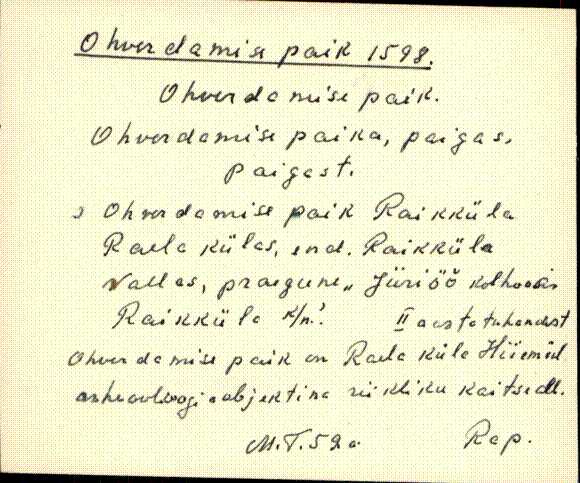 Ohverdamise paik 1598.
Ohverdamise paik.
Ohverdamise paika, paigas,
paigast.
Ohverdamise paik Raikküla
Raela külas, end. Raikküla
vallas, praegune „Jüriöö kolhoosis
Raikküla k/n. II aastatuhandest
Ohverdamise paik on Raela küla Hiiemäel
arheoloogiaobjektina riikliku kaitse all.
M.T. 52 a. Rap.